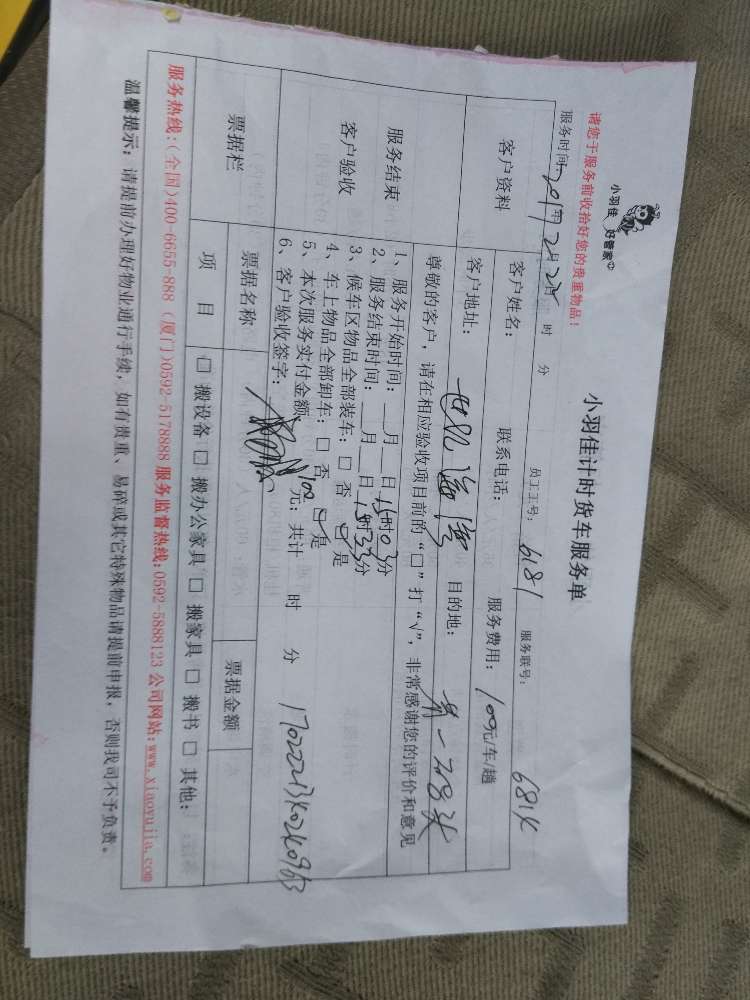 小羽佳 好管家
小羽佳计时货车服务单
请您于服务前收拾好您的贵重物品！
服务时间: 2017年2月22 时 分 员工工号: 6181 服务联号: 6814
客户资料
客户姓名: 联系电话: 服务费用: 100元/车/趟
客户地址: 世纪海湾 目的地: 第一码头
服务结束
客户验收
尊敬的客户，请在相应验收项目前的“□”打“√”，非常感谢您的评价和意见
1、服务开始时间: 月 日15时03分
2、服务结束时间: 月 日15时33分
3、候车区物品全部装车: □ 否 □ 是
4、车上物品全部卸车: □ 否 □ 是
5、本次服务实付金额 100 元; 共计 时 分
6、客户验收签字:
票据栏
票据名称 票据金额
项 目
□ 搬设备 □ 搬办公家具 □ 搬家具 □ 搬书 □ 其他:
服务热线: (全国)400-6655-888 (厦门)0592-5178888 服务监督热线:0592-5888123 公司网站:www.xiaoyujia.com
温馨提示: 请提前办理好物业通行手续，如有贵重、易碎或其它特殊物品请提前申报，否则我司不予负责。